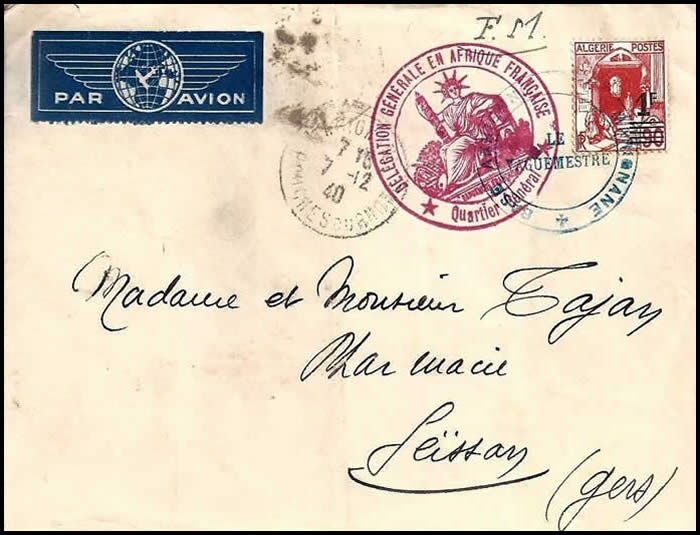 F. M.
PAR AVION
DÉLÉGATION GÉNÉRALE EN AFRIQUE FRANÇAISE
Quartier Général
ALGERIE POSTES
1F
90
7 12
40
BOUCHES DU RHONE
LE
VAGUEMESTRE
Madame et Monsieur Tajan
Pharmacie
Seissan
(Gers)